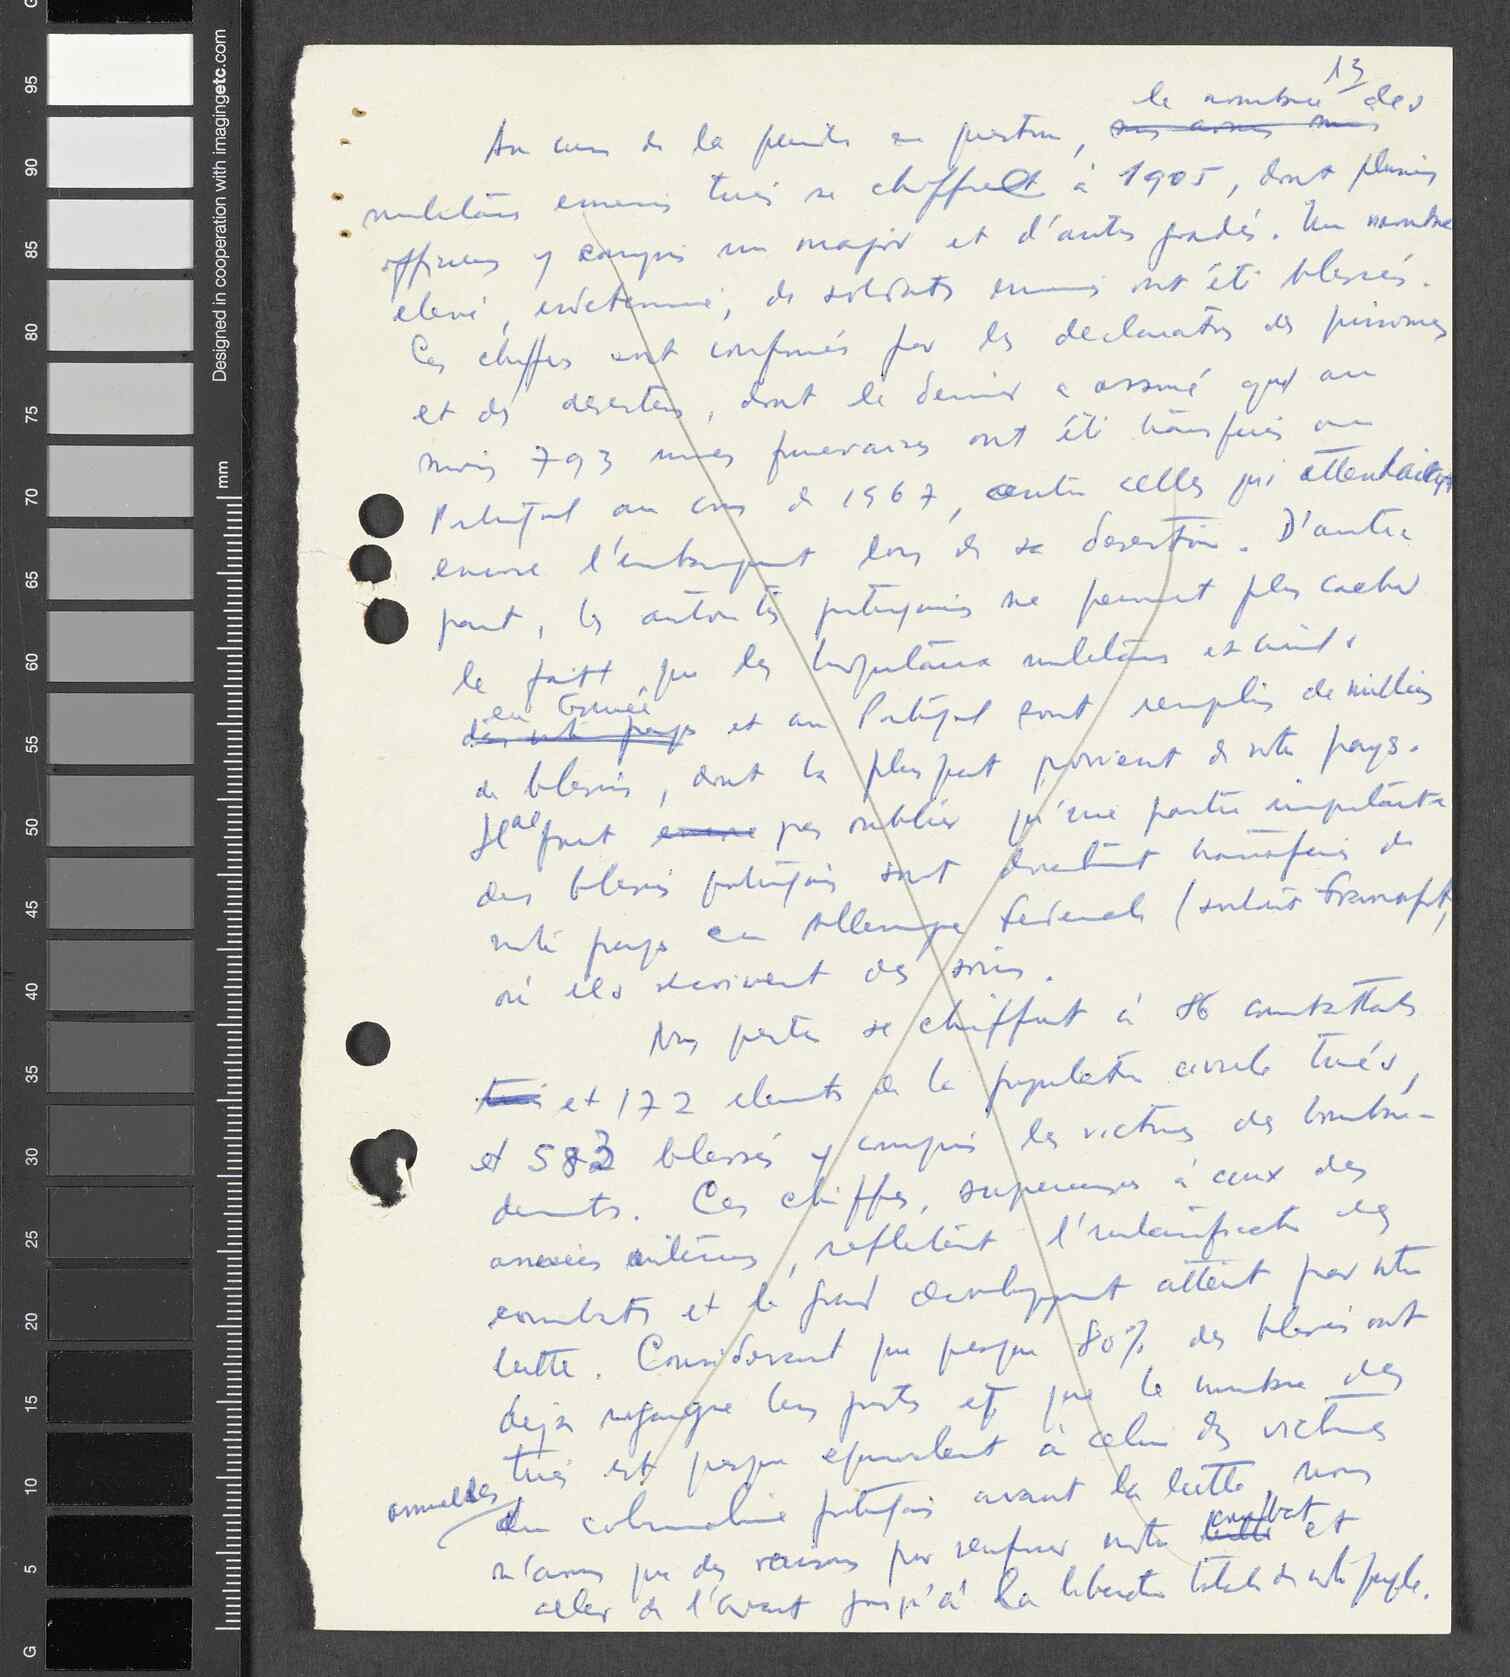 13
le nombre des
Au cours de la periode en question,
militaires ennemis tués se chiffrent à 1905, dont plusieurs
officiers y compris un major et d'autres gradés. Un nombre
elevé, indeterminé, de soldats ennemis ont été blessés.
Ces chiffres sont confirmés par les declarations des prisonniers
et des deserteurs, dont le dernier a assuré que au
moins 793 urnes funeraires ont été transferées au
Portugal au cours de 1967, outre celles qui attendaient
encore l'embarquement lors de sa desertion. D'autre
part, les autorités portugaises ne peuvent plus cacher
le fait que les hopitaux militaires et civils
en Guinée
dans notre pays et au Portugal sont remplis de milliers
de blessés, dont la plus part provient de notre pays.
Il ne faut encore pas oublier qu'une partie importante
des blessés portugais sont directement transferés de
notre pays en Allemagne Federale (surtout Francfort,
où ils reçoivent des soins.
Nos pertes se chiffrent à 86 combattants
tués et 172 elements de la population civile tués,
et 583 blessés y compris les victimes des bombar-
dements. Ces chiffres, superieures à ceux des
années anterieures, refletent l'intensification des
combats et le grand developpement atteint par notre
lutte. Considerant que presque 80% des blessés ont
deja regagné leurs postes et que le nombre des
tués est presque equivalent à celui des victimes
annuelles
du colonialisme portugais avant la lutte, nous
combat
n'avons que des raisons pour renforcer notre lutte et
aller de l'avant jusqu'à la liberation totale de notre peuple.
Designed in cooperation with imagingetc.com
mm
95
90
85
80
75
70
65
60
55
50
45
40
35
30
25
20
15
10
5
G